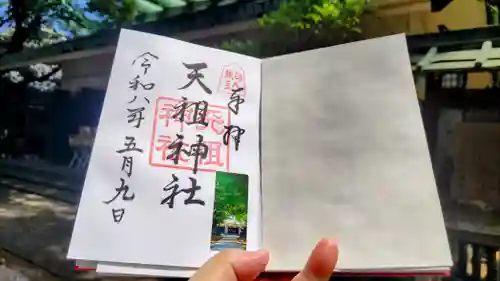 奉拝
天祖神社
天祖神社
令和八年五月九日